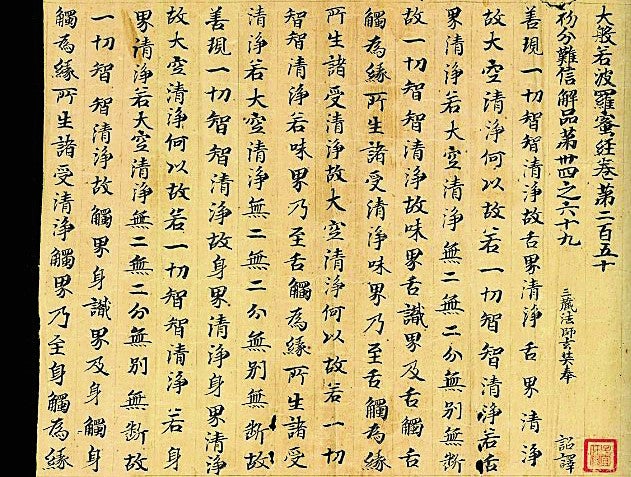 大般若波羅蜜經卷第二百五十
初分難信解品第卅四之六十九 三藏法師玄奘奉 詔譯
善現一切智智清淨故舌界清淨舌界清淨
故大空清淨何以故若一切智智清淨若舌
界清淨若大空清淨無二無二分無別無斷
故一切智智清淨故味界舌識界及舌觸舌
觸為緣所生諸受清淨味界乃至舌觸為緣
所生諸受清淨故大空清淨何以故若一切
智智清淨若味界乃至舌觸為緣所生諸受
清淨若大空清淨無二無二分無別無斷故
善現一切智智清淨故身界清淨身界清淨
故大空清淨何以故若一切智智清淨若身
界清淨若大空清淨無二無二分無別無斷故
一切智智清淨故觸界身識界及身觸身
觸為緣所生諸受清淨觸界乃至身觸為緣